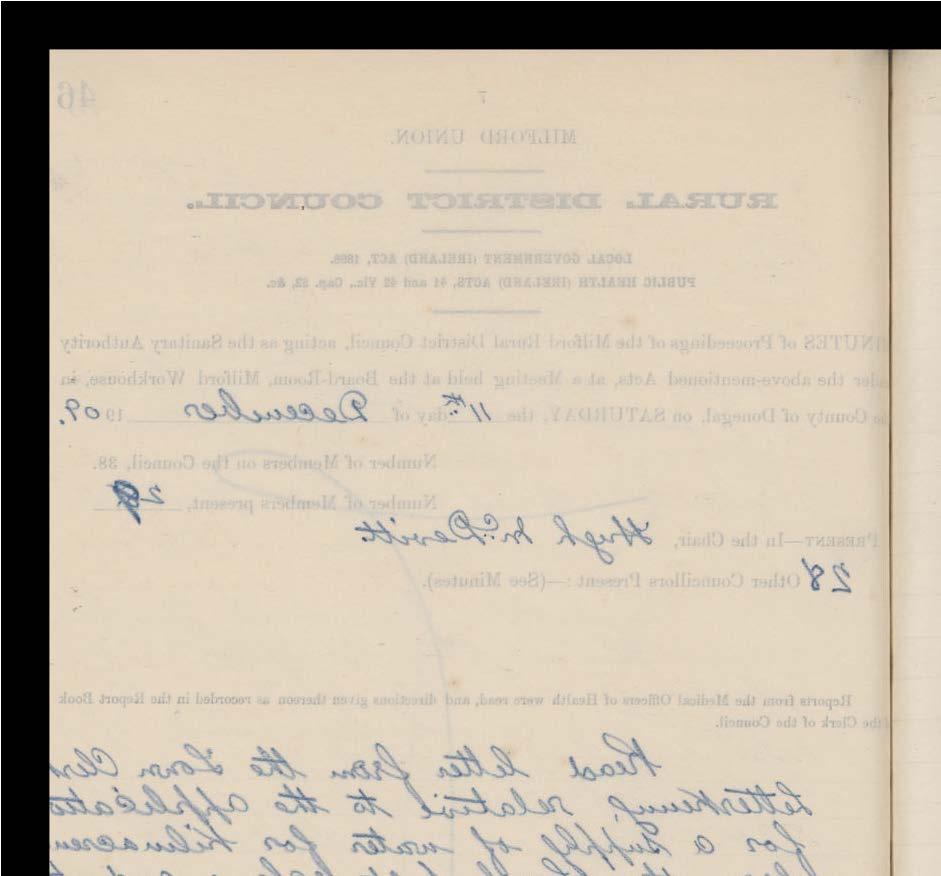 46
7
MILFORD UNION.
RURAL DISTRICT COUNCIL.
LOCAL GOVERNMENT (IRELAND) ACT, 1898.
PUBLIC HEALTH (IRELAND) ACTS, 41 and 42 Vic., Cap. 52, &c.
INUTES of Proceedings of the Milford Rural District Council, acting as the Sanitary Authority
der the above-mentioned Acts, at a Meeting held at the Board-Room, Milford Workhouse, in
e County of Donegal, on SATURDAY, the 11th day of December 1909.
Number of Members on the Council, 38.
Number of Members present, 29
PRESENT—In the Chair, Hugh McDevitt
28 Other Councillors Present:—(See Minutes).
Reports from the Medical Officers of Health were read, and directions given thereon as recorded in the Report Book
the Clerk of the Council.
Read letter from the Town Cler
Letterkenny relative to the applicatio
for a supply of water for Kilmacren